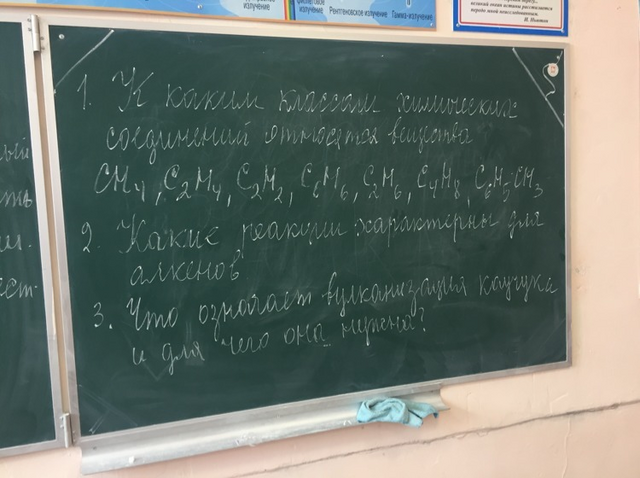 излучение
излучение
Рентгеновское излучение
Гамма-излучение
великий океан истины расстилается
передо мной неисследованным.
И. Ньютон
1. К каким классам химических
соединений относятся вещества
CH4, C2H4, C2H2, C6H6, C2H6, C4H8, C6H5-CH3
2. Какие реакции характерны для
алкенов
3. Что означает вулканизация каучука
и для чего она нужна?